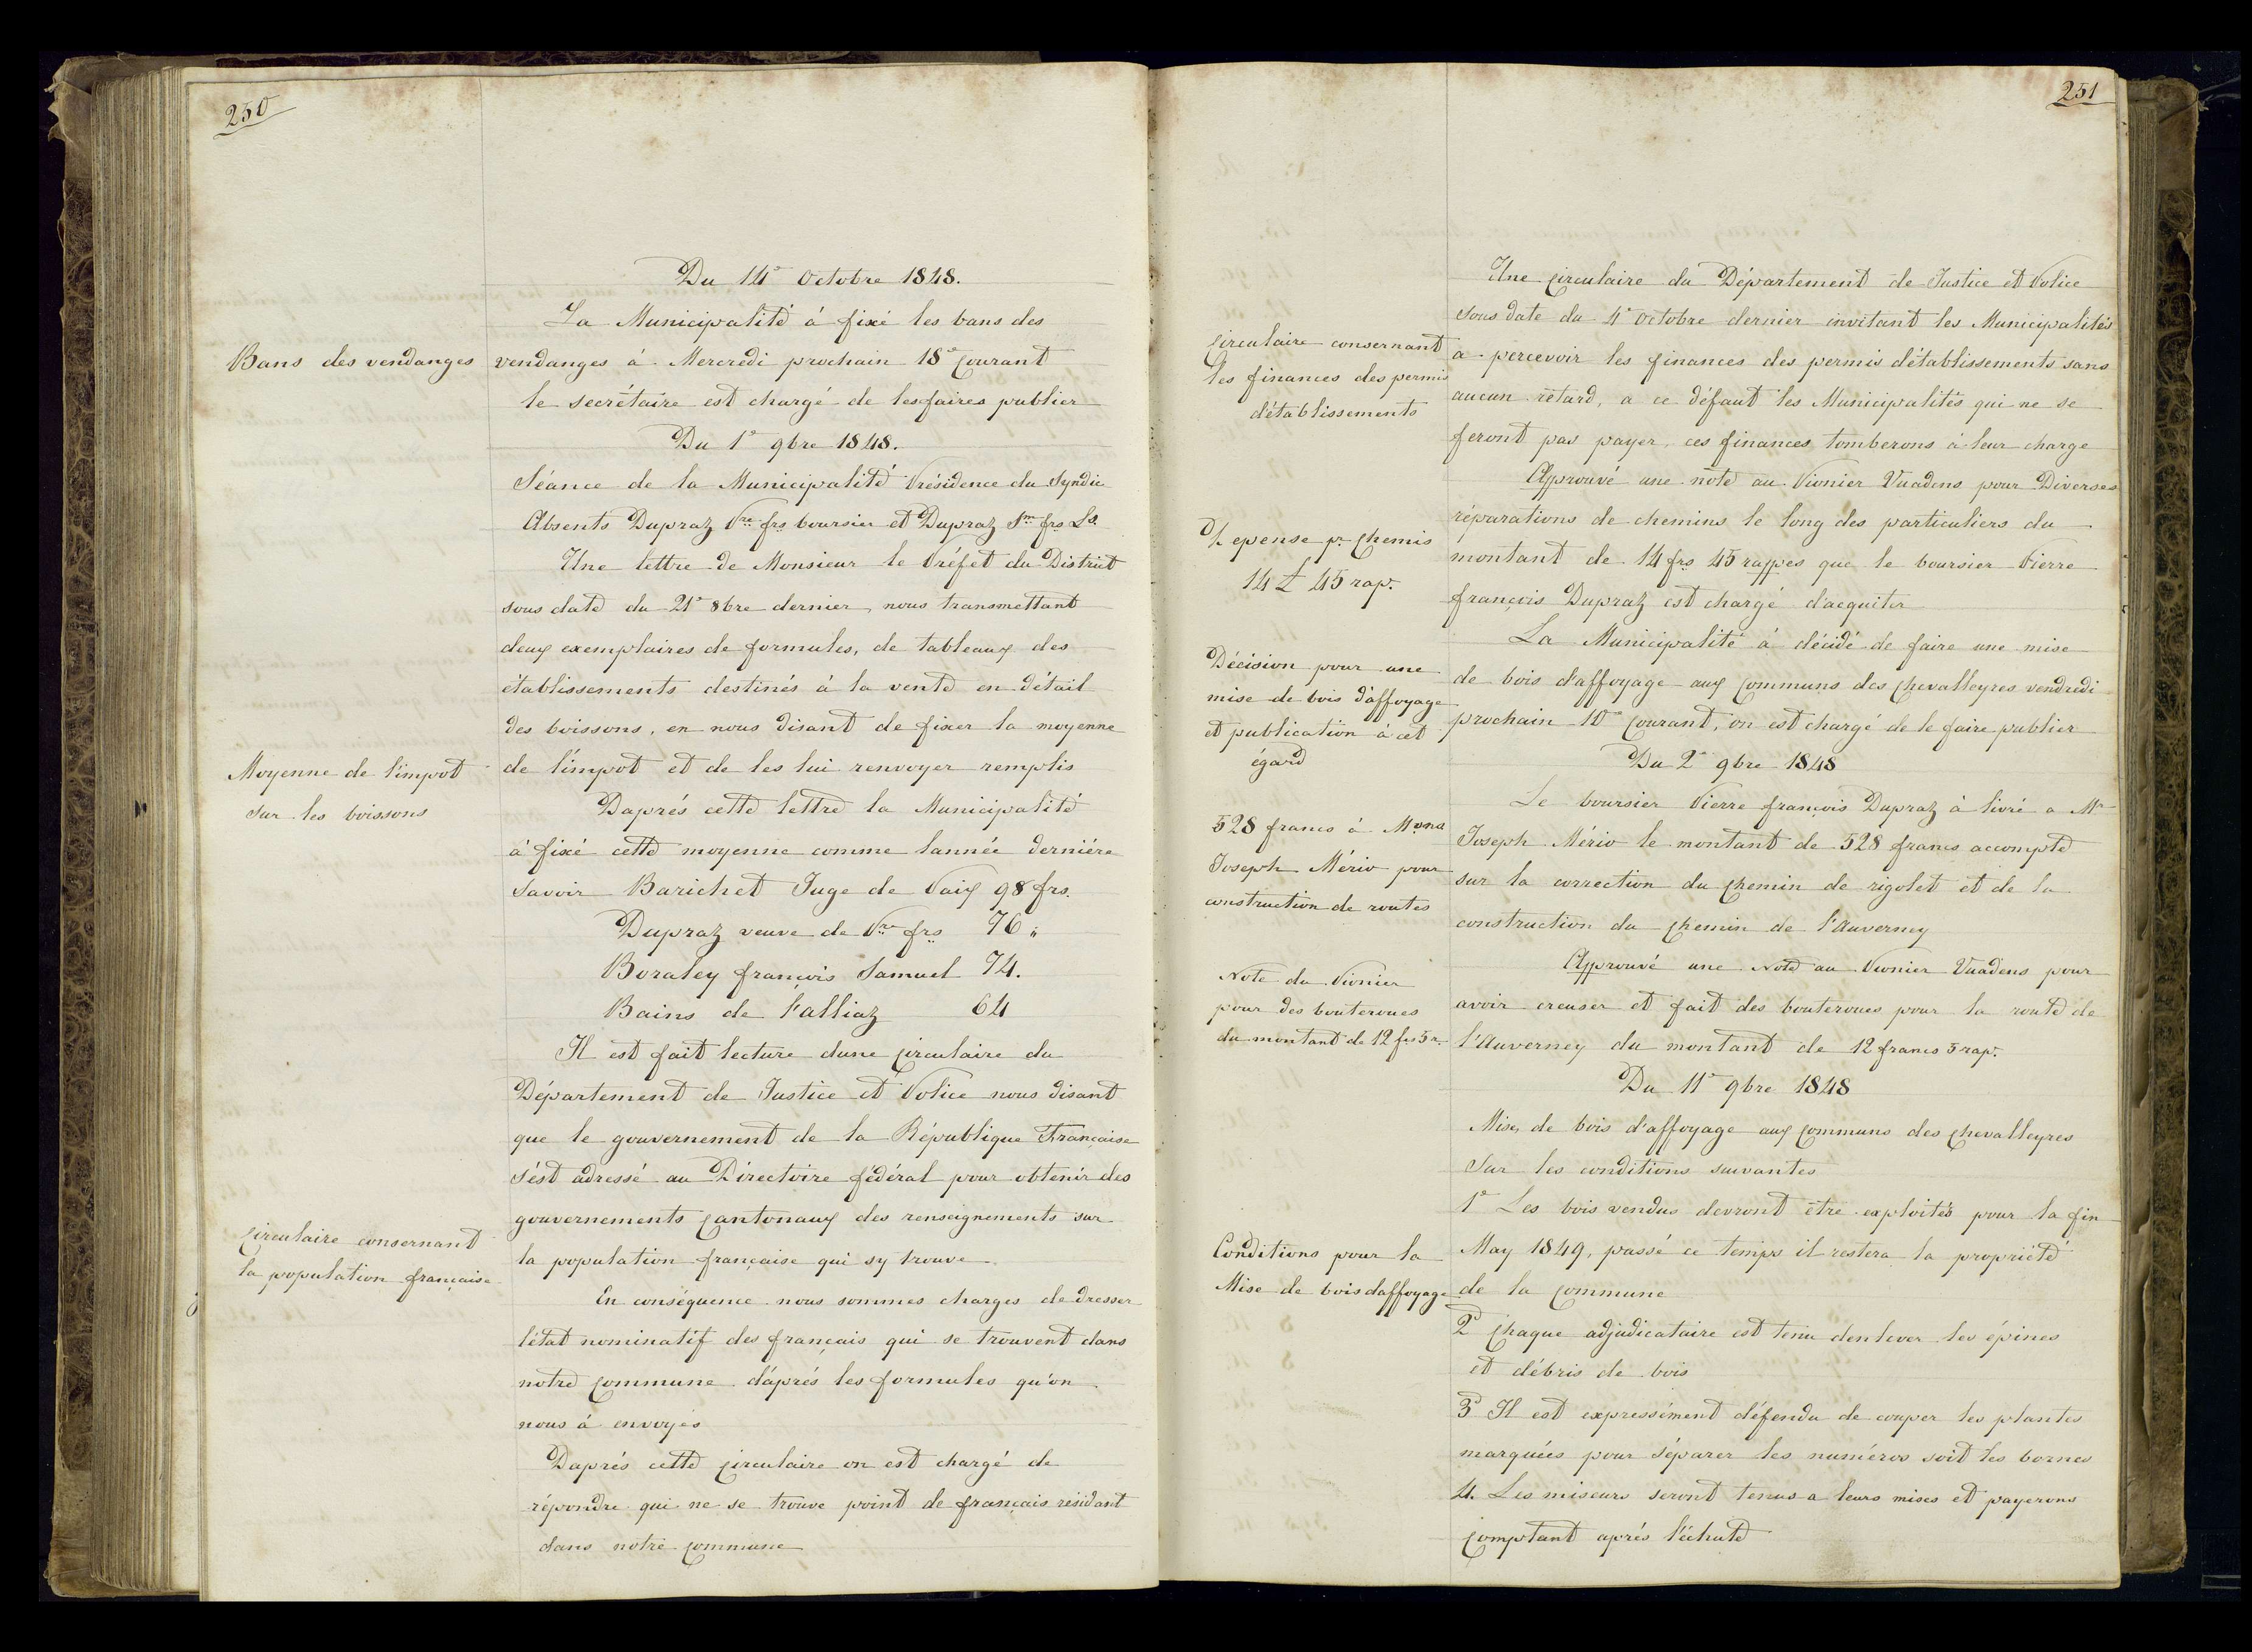 250
Du 14e Octobre 1848.
La Municipalité á fixé les bans des
Bans des vendanges
vendanges á Mercredi prochain 18e Courant
le secrétaire est chargé de les faires publier
Du 1e 9bre 1848.
Séance de la Municipalité Présidence du Syndic
Absents Dupraz Pre frs boursier et Dupraz Jm frs Ls.
Une lettre de Monsieur le Préfet du District
sous date du 21e 8bre dernier, nous transmettant
deux exemplaires de formules, de tableaux des
établissements destinés á la vente en détail
des boissons, en nous disant de fixer la moyenne
Moyenne de l'impot
sur les boissons
de l'impot et de les lui renvoyer remplis
Daprés cette lettre la Municipalité
á fixé cette moyenne comme lannée derniére
Savoir Barichet Juge de Paix 98 frs.
Dupraz veuve de Pre frs 76 "
Boraley françois Samuel 74.
Bains de l'alliaz 64
Il est fait lecture dune Circulaire du
Département de Justice et Police nous disant
que le gouvernement de la République Française
s'ést adressé au Directoire fédéral pour obtenir des
gouvernements Cantonaux des renseignements sur
Circulaire consernant
la population française
la population française qui sy trouve
En conséquence nous sommes charges de dresser
l'état nominatif des français qui se trouvent dans
notre Commune d'áprés les formules qu'on
nous á envoyés
Daprés cette Circulaire on est chargé de
répondre qui ne se trouve point de français résidant
dans notre Commune
251
Une Circulaire du Département de Justice et Police
sous date du 4e Octobre dernier invitant les Municipalités
Circulaire consernant
les finances des permis
d'établissements
a percevoir les finances des permis d'établissements sans
aucun retard, a ce défaut les Municipalités qui ne se
feront pas payer, ces finances tomberons á leur charge
Approuvé une note au Pionier Vuadens pour Diverses
réparations de chemins le long des particuliers du
Depense pr Chemis
14 £ 45 rap.
montant de 14 frs 45 rappes que le boursier Pierre
françois Dupraz est chargé d'acquiter
La Municipalité á décidé de faire une mise
Décision pour une
mise de bois d'affoyage
et publication á cet
égard
de bois d'affoyage aux Communs des Chevalleyres vendredi
prochain 10e Courant, on est chargé de le faire publier
Du 2e 9bre 1848
Le boursier Pierre françois Dupraz á livré a Mr
528 francs á Mons
Joseph Mério pour
construction de routes
Joseph Mério le montant de 528 francs accompte
sur la correction du Chemin de rigolet et de la
construction du Chemin de l'Auverney
Approuvé une Note au Pionier Vuadens pour
Note du Pionier
pour des bouteroues
du montant de 12 frs 5 r.
avoir creuser et fait des bouteroues pour la route de
l'Auverney du montant de 12 francs 5 rap.
Du 11e 9bre 1848
Mises de bois d'affoyage aux Communs des Chevalleyres
Sur les conditions suivantes
1e Les bois vendus devront être exploités pour la fin
Conditions pour la
Mise de bois daffoyage
May 1849, passé ce temps il restera la propriété
de la Commune
2e Chaque adjudicataire est tenu denlever les épines
et débris de bois
3e Il est expressément défendu de couper les plantes
marquées pour séparer les numéros soit les bornes
4. Les miseurs seront tenus a leurs mises et payerons
Comptant aprés l'échute